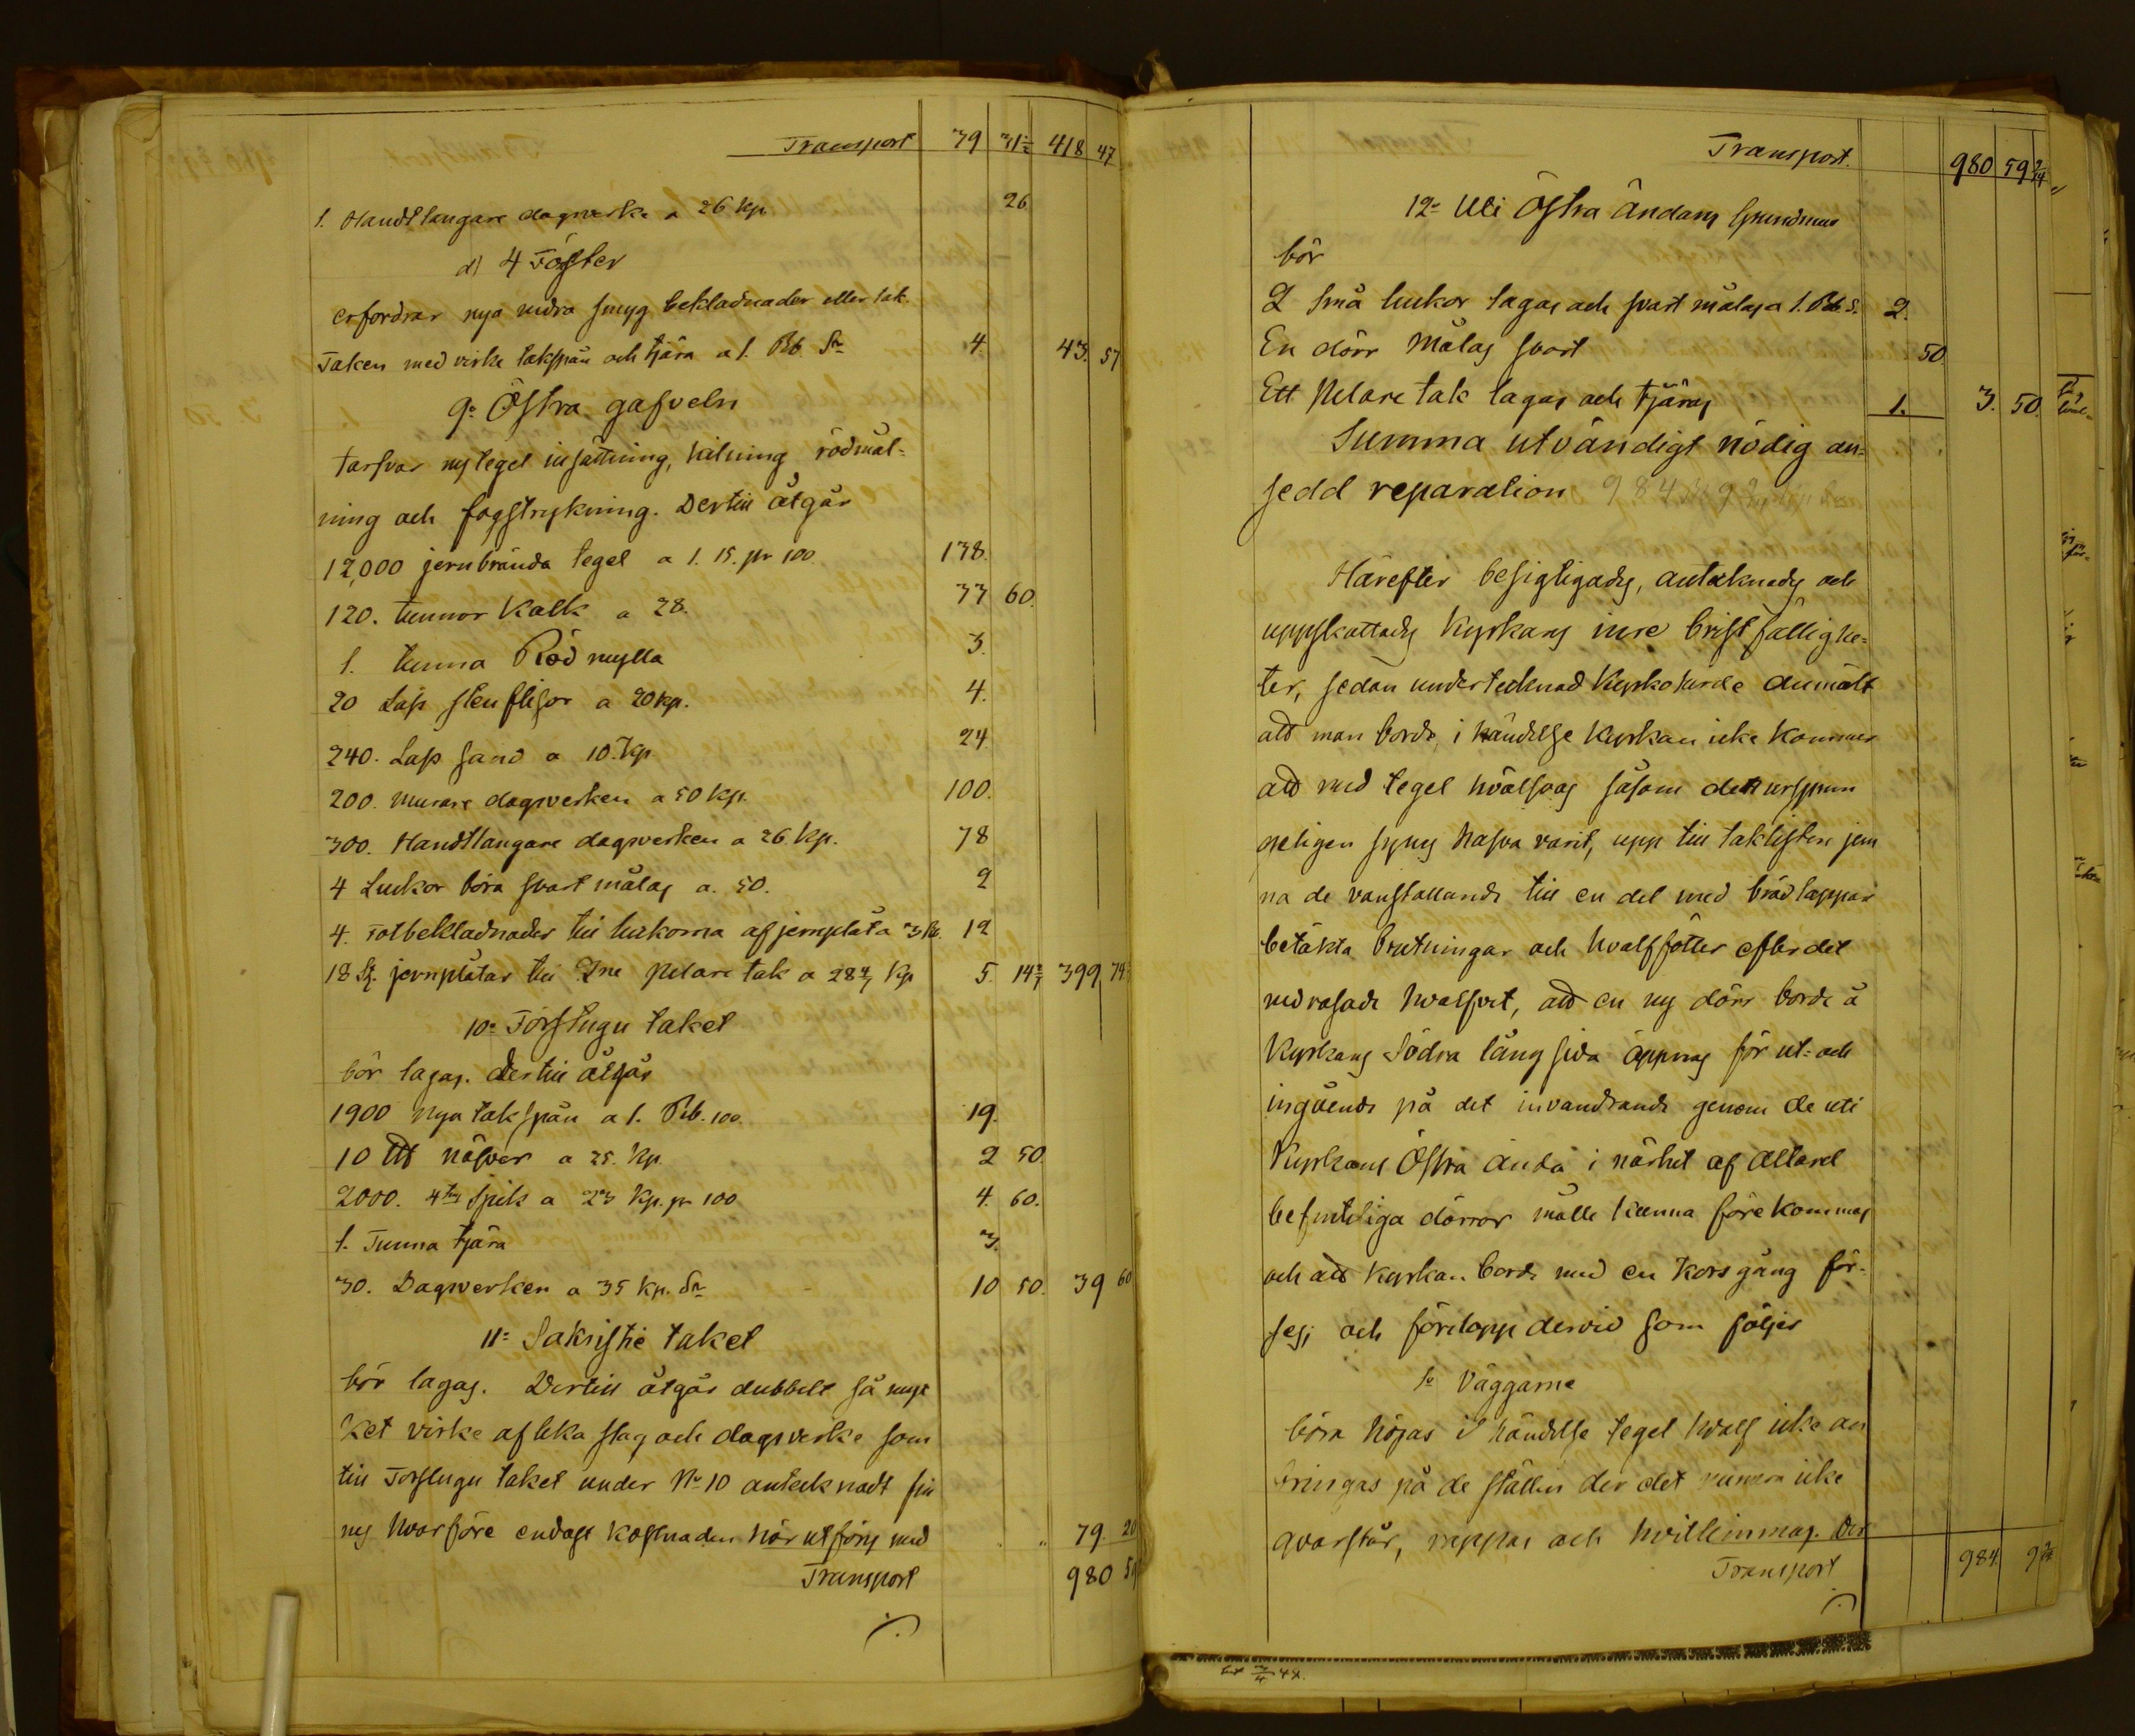 Transport 39 31½ 418 47
1. Handtlangare dagsverke a 26 Kp. 26
d) 4 Fönster
erfordrar nya nedra smyg bekladnader eller tak.
Taken med virke takspån och tjära a 1. Rb. Sr 4. 43. 57
9o Östra gafveln
tarfvar ny tegel insättning, kilning rödmål-
ning och fogstrykning. Dertill åtgår
12,000 jernbrända tegel a 1. 15. pr 100. 138.
120. tunnor Kalk a 28. 33 60.
1. tunna Röd mylla 3.
20 Lass stenflisor a 20 kp. 4.
240. Lass sand a 10. Kp 24
200. murare dagsverken a 50 Kp. 100.
300. Handtlangare dagsverken a 26 Kp. 78
4 Luckor böra svart målas a. 50. 2
4. Fotbekladnader till luckorna af jernplåta 3 Rb. 12
18 St. jernplåtar till 2ne pelare tak a 28 4/7 Kp 5. 14 2/7 399 74
10o Förstugu taket
bör lagas. dertill åtgår
1900 nya takspån a 1. Rb. 100. 19.
10 näfver a 25. Kp. 2 50.
2000. 4 tums spik a 23 Kp. pr 100 4. 60.
1. Tunna tjära 3.
30. Dagsverken a 35 Kp. Sr 10 50. 39 60
11o Sakristie taket
bör lagas. Dertill åtgår dubbelt så myc
ket virke af lika slag och dagsverke som
till Forstugu taket under No 10 antecknadt fin
nes hvarföre endast kostnaden här utföres med 79 20
Transport 980 59
Transport. 980 59 2/14
12o Uti Östra Ändans Grundmur
bör
2 små luckor lagas och svart målas a 1. Rb. S. 2.
En dörr Målas svart 50
Ett Pelare tak lagas och tjäras 1. 3. 50.
Summa utvändigt nödig an-
sedd reparation 984
Härefter besigtigades, antecknades och
uppskattades Kyrkans inre bristfällighe-
ter, sedan undertecknad Kyrkoherde anmält
att man borde, i händelse Kyrkan icke kommer
att med tegel hvälfvas såsom den ursprun
geligen synes hafva varit, upp till taklisten jem
na de vanstallande till en del med brädlappar
betäkta brutningar och hvalffötter efter det
nedrasade hvalfvet, att en ny dörr borde å
Kyrkans Södra långsida öppnas för ut- och
ingående på det invandrande genom de uti
Kyrkans Östra ända i närhet af Altaret
befintliga dörrar måtte kunna förekommas
och att Kyrkan borde med en Korsgång för-
ses; och förelopp dervid som följer
1o Väggarne
böra höjas i händelse tegel hvalf icke an
bringas på de ställen der det numera icke
qvarstår, reppas och hvitlimmas. Der
Transport 984. 9 2/14